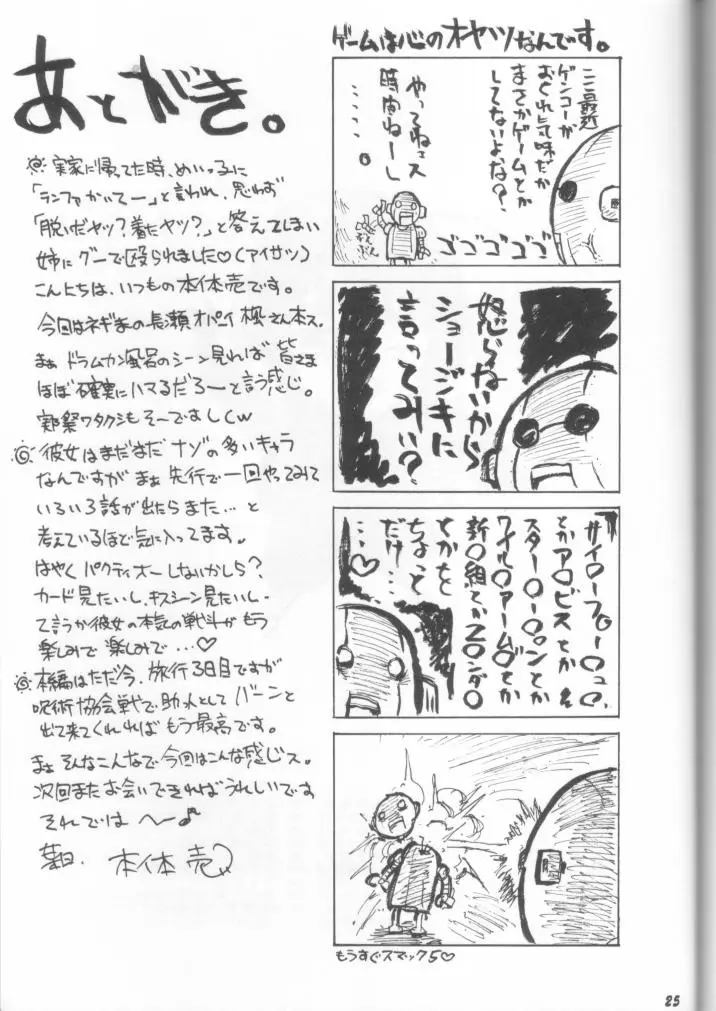 あとがき。
実家に帰ってた時、めいっ子に
「ランファかいてー」と言われ、思わず
「脱いだヤツ?着たヤツ?」と答えてしまい
姉にグーで殴られました♡(アイサツ)
こんにちは、いつもの本体売です。
今回はネギまの長瀬オパイ楓さん本ス。
まぁドラムカン風呂のシーン見れば皆さま
ほぼ確実にハマるだろーと言う感じ。
実際ワタクシもそーですしくw
彼女はまだまだナゾの多いキャラ
なんですがまぁ先行で一回やってみて
いろいろ話が出たらまた…と
考えているほど気に入ってます。
はやくパクティオーしないかしら?
カード見たいし、キスシーン見たいし、
て言うか彼女の本気の戦斗がもう
楽しみで楽しみで…♡
本編はただ今、旅行3日目ですが
呪術協会戦で助人としてバーンと
出て来てくれればもう最高です。
まぁそんなこんなで今回はこんな感じス。
次回またお会いできればうれしいです
それでは へー♪
本体売
ゲームは心のオヤツなんです。
ここ最近
ゲンコーが
おくれ気味だか
まさかゲームとか
してないよな?
やってねェス
時間ねーし
……。
ゴゴゴゴゴ
怒らないから
ショージキに
言ってみい?
サイ○ーフ○ー○ュ○、
とかア○ビスとか
スター○ー○ンとか
ワイル○アーム○とか
新○組とかZ○ンダ○
とかをと
ちょっと
だけ…
…♡
もうすぐスマック5♡
25